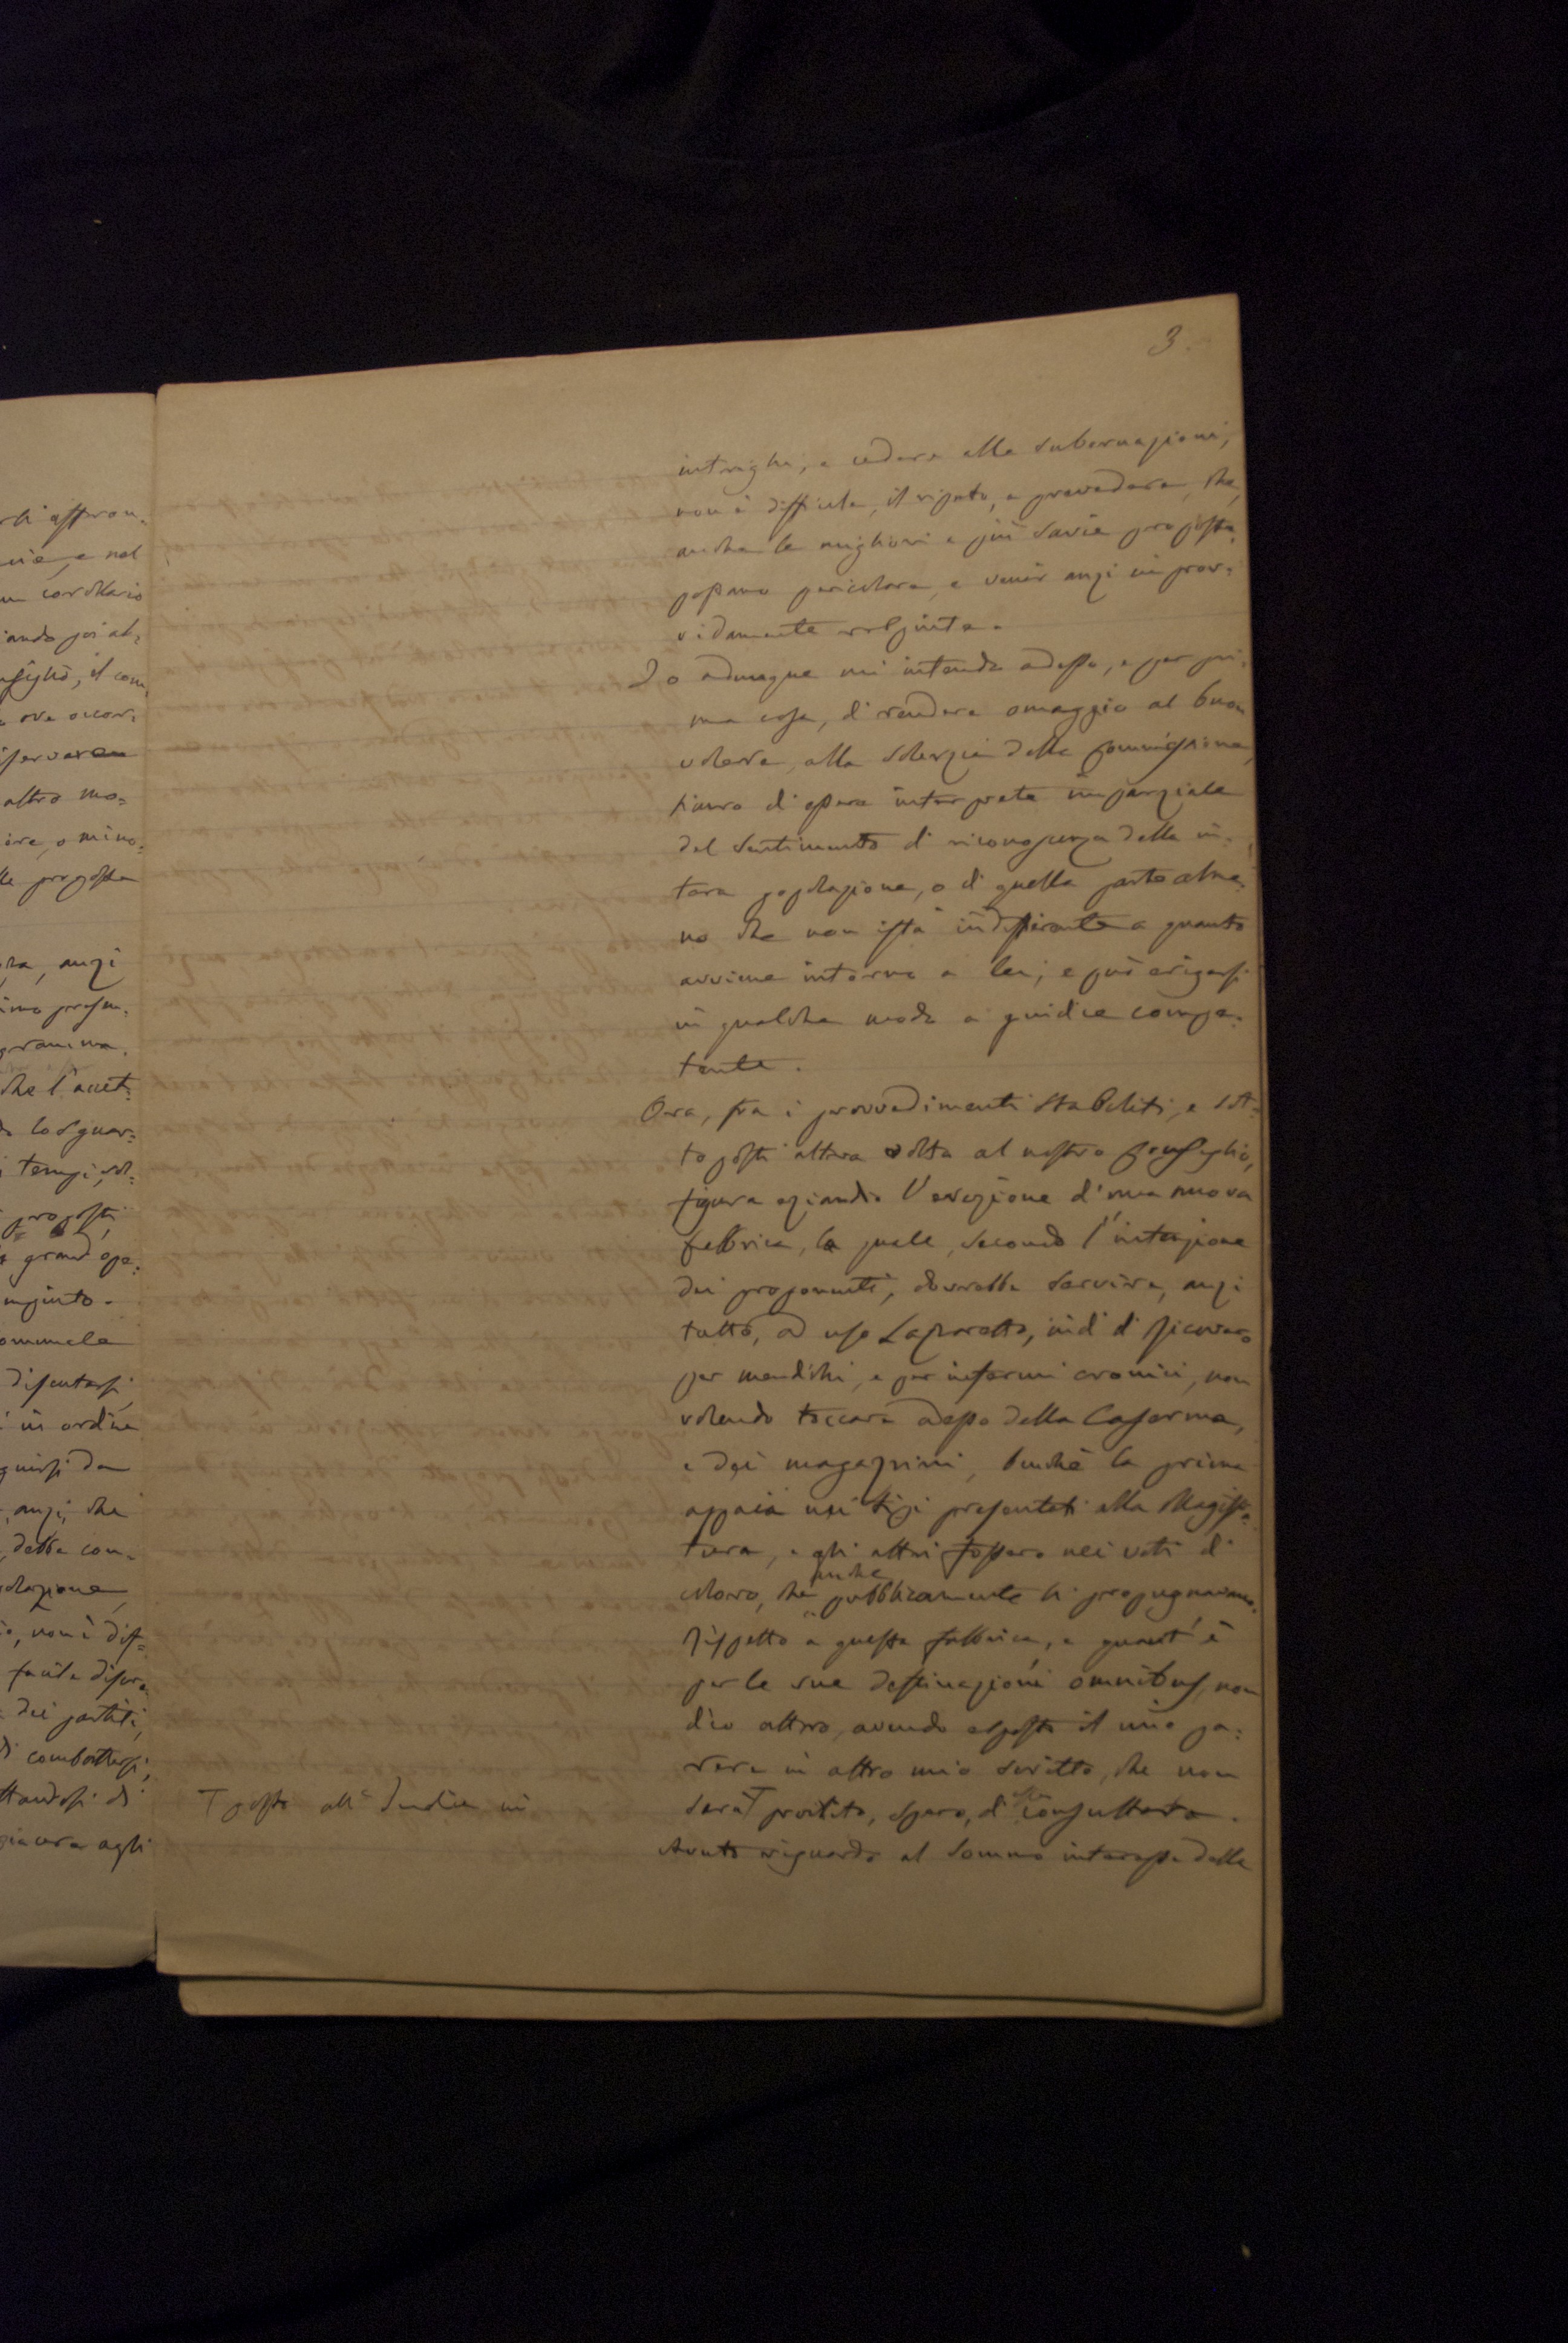 3.
intrighi, e cedere alle subornazioni,
non è difficile, il ripeto, e prevedere, che,
anche le migliori e più savie proposte,
possano pericolare, e venir anzi improv=
vidamente respinte.
Io adunque mi intendo adesso, e per pri=
ma cosa, di rendere omaggio al buon
volere, alla solerzia della Commissione,
sicuro di essere interprete imparziale
del sentimento di riconoscenza della in=
tera popolazione, o di quella parte alme=
no che non istà indifferente a quanto
avviene intorno a lei, e può erigersi
in qualche modo a giudice compe=
tente.
Ora, fra i provvedimenti stabiliti, e sot=
toposti altra volta al nostro Consiglio,
figura eziandio l'erezione d'una nuova
fabbrica, la quale, secondo l'intenzione
dei proponenti, dovrebbe servire, anzi
tutto, ad uso Lazzaretto, indi di Ricovero
per mendichi, e per infermi cronici, non
volendo toccare adesso della Caserma,
e dei magazzini, benchè la prima
appaia nei tipi presentati alla Magistra=
tura, e gli altri fossero nei voti di
coloro, che anche pubblicamente li propugnavano.
Rispetto a questa fabbrica, e quant'è
per le sue destinazioni omnibus, non
dico altro, avendo esposto il mio pa=
rere in altro mio scritto, che non
sarà T proibito, spero, di consultare.
T posto all'Indice nè
Avuto riguardo al sommo interesse delle
altro mo=
le proposte
anzi
che l'accet=
lo sguar=
tempi, sol=
proposti,
discutersi,
in ordine
anzi, che
debba con=
non è dif=
facile
dei partiti,
di combattersi,
agli